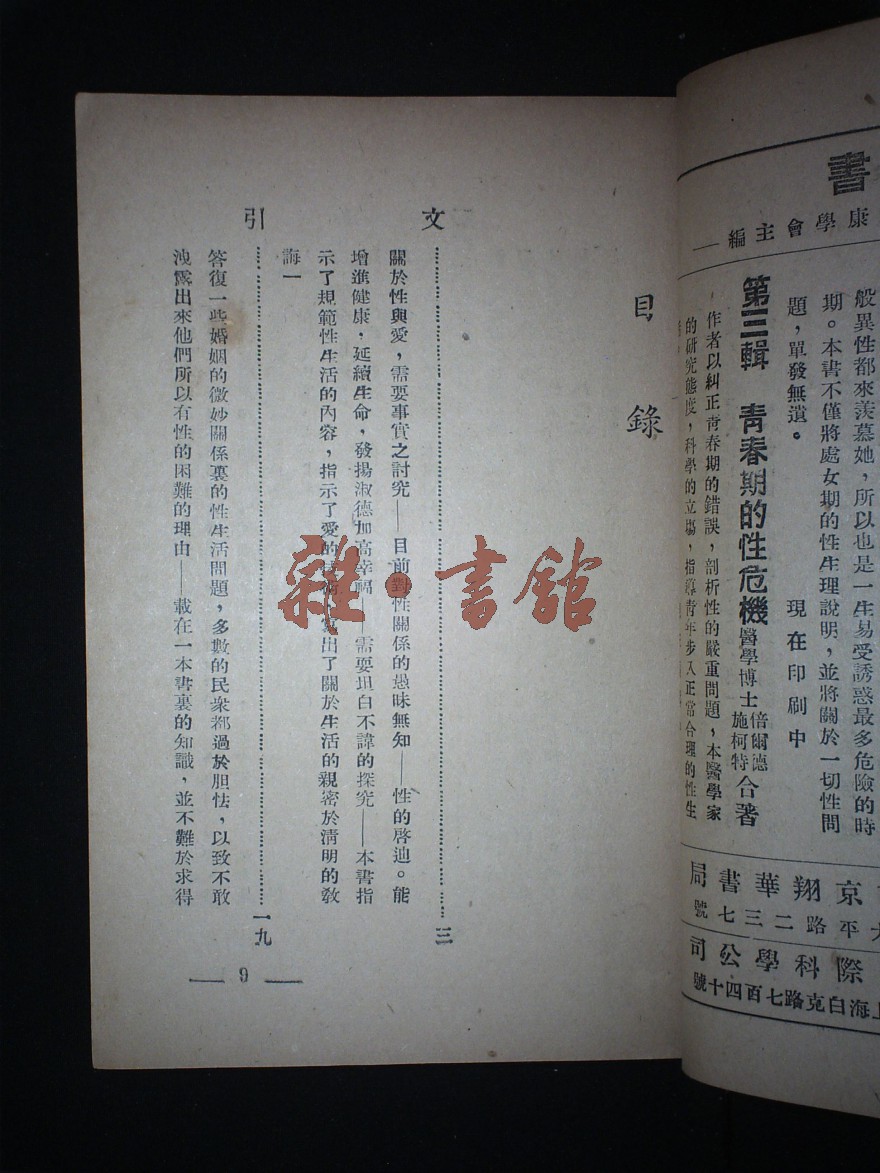 書
康學會主編——
般異性都來羨慕她，所以也是一生易受誘惑最多危險的時
期。本書不僅將處女期的性生理說明，並將關於一切性問
題，單發無遺。
現在印刷中
第三輯 青春期的性危機
醫學博士
倍爾德
施柯特
合著
作者以糾正靑春期的錯誤，剖析性的嚴重問題，本醫學家
的研究態度，科學的立場，指導靑年步入正常合理的性生
京翔華書局
平路二三七號
際科學公司
上海白克路七百四十號
目錄
文……三
關於性與愛，需要事實之討究——目前對性關係的愚昧無知——性的啓迪。能
增進健康，延續生命，發揚淑德加高幸福——需要坦白不諱的探究——本書指
示了規範性生活的內容，指示了愛的出了關於生活的親密於淸明的敎
誨一
引……一九
答復一些婚姻的微妙關係裏的性生活問題，多數的民衆都過於胆怯，以致不敢
洩露出來他們所以有性的困難的理由——載在一本書裏的知識，並不難於求得
9
雜·書館